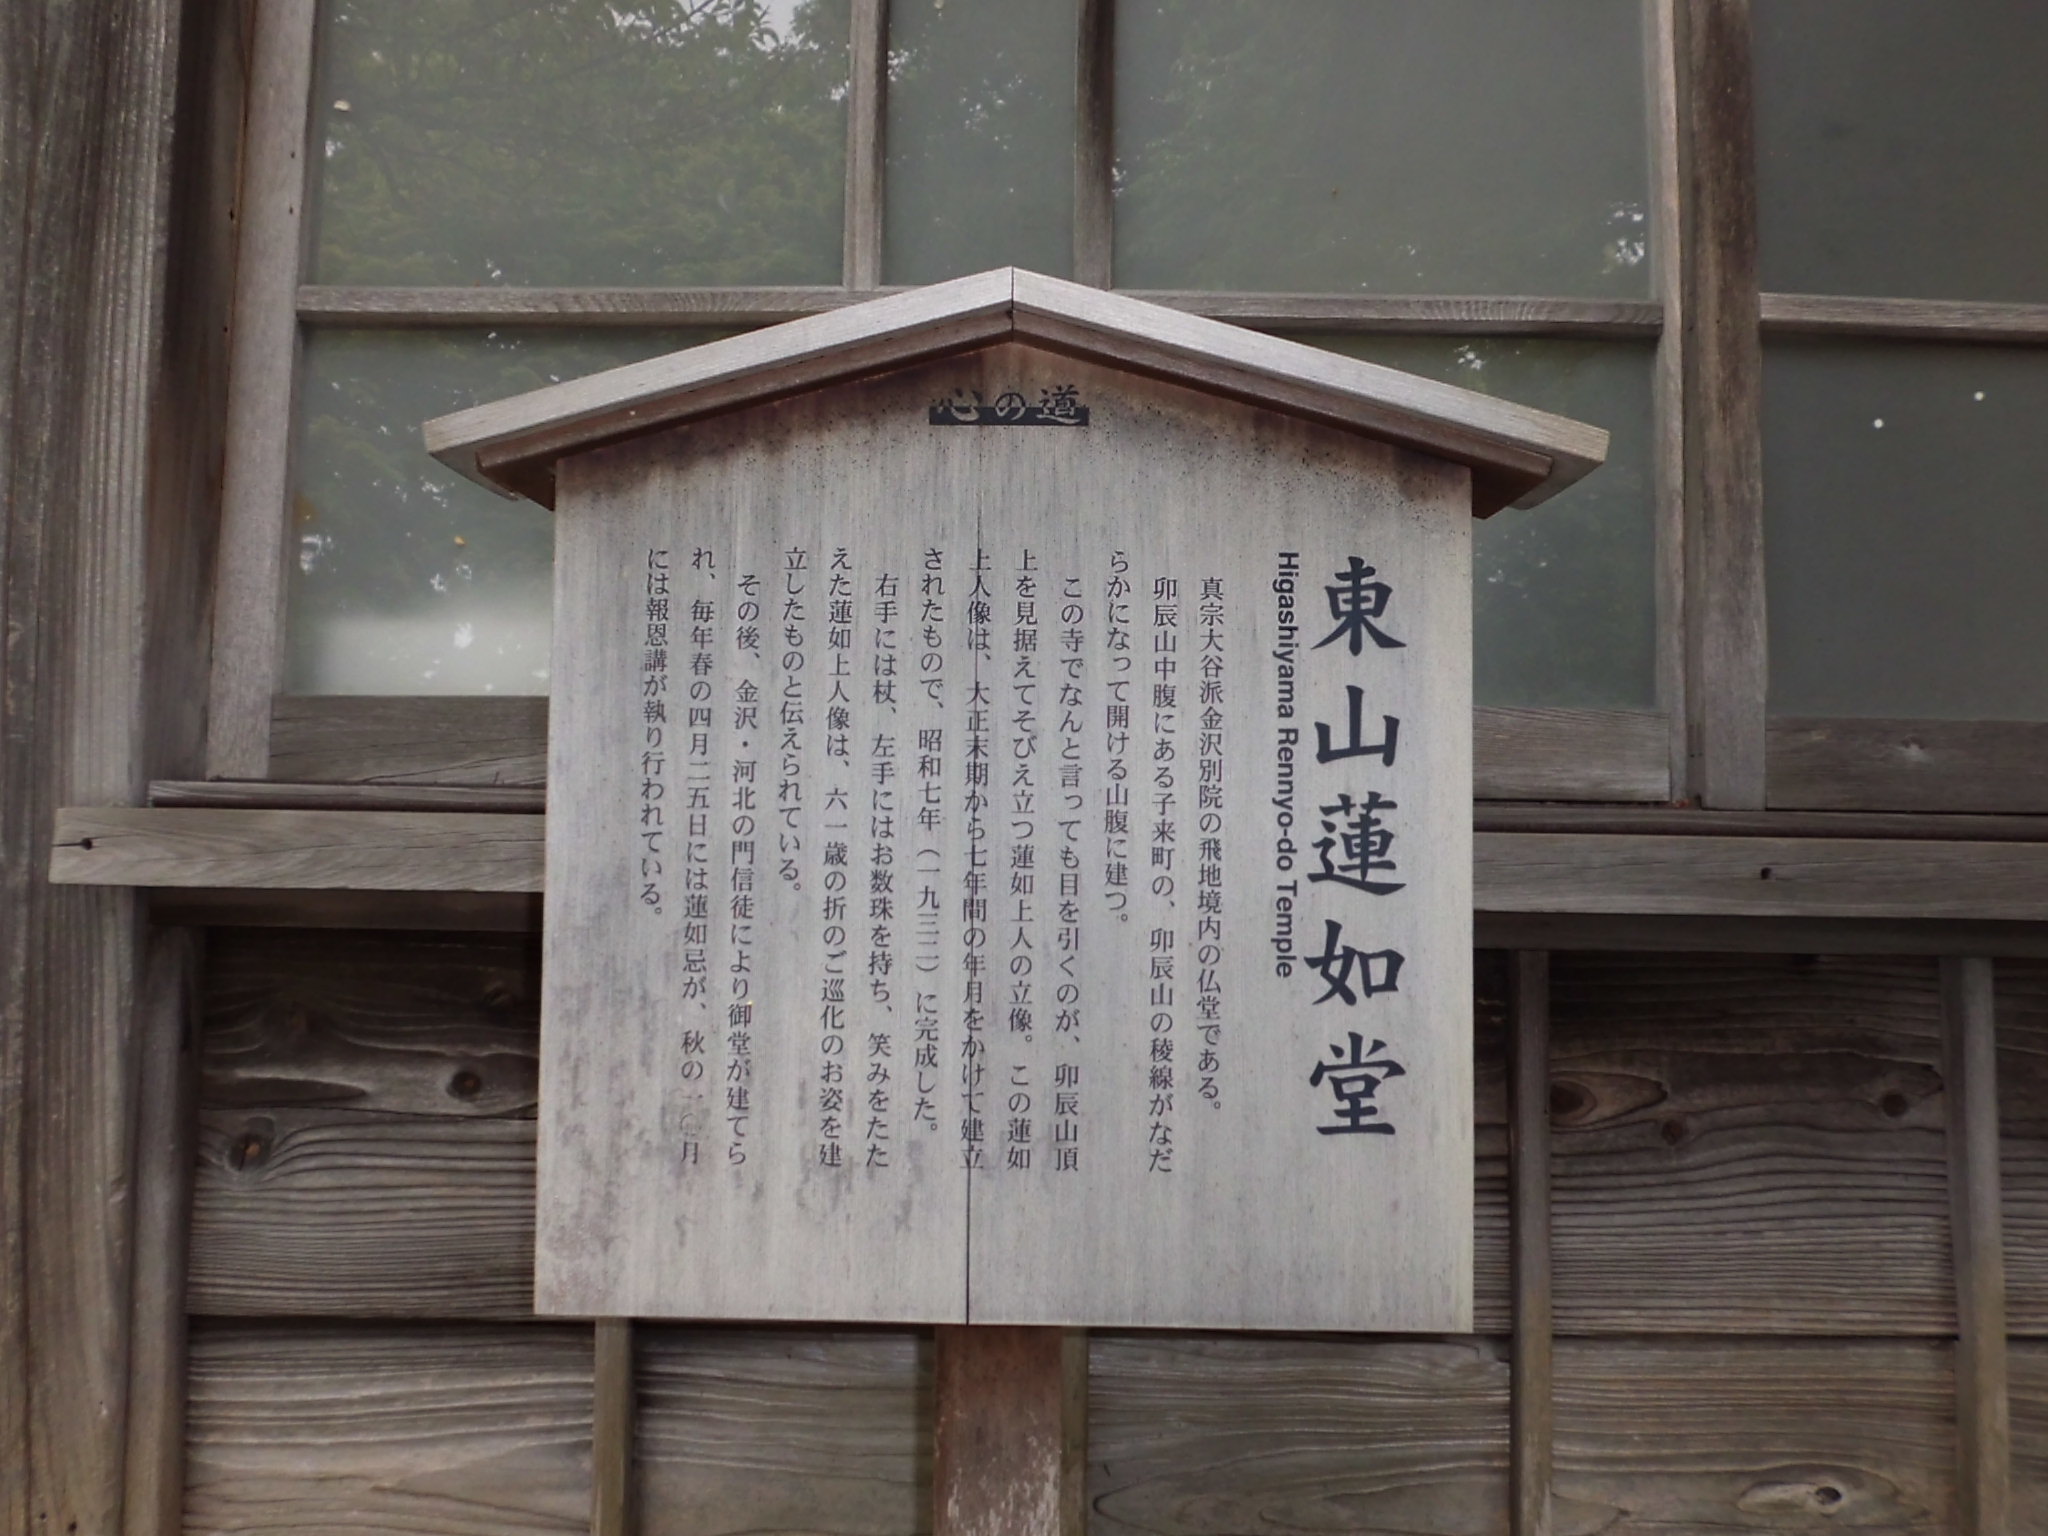 心の道
東山蓮如堂
Higashiyama Rennyo-do Temple
真宗大谷派金沢別院の飛地境内の仏堂である。
卯辰山中腹にある子来町の、卯辰山の稜線がなだ
らかになって開ける山腹に建つ。
この寺でなんと言っても目を引くのが、卯辰山頂
上を見据えてそびえ立つ蓮如上人の立像。この蓮如
上人像は、大正末期から七年間の年月をかけて建立
されたもので、昭和七年（一九三二）に完成した。
右手には杖、左手にはお数珠を持ち、笑みをたた
えた蓮如上人像は、六一歳の折のご巡化のお姿を建
立したものと伝えられている。
その後、金沢・河北の門信徒により御堂が建てら
れ、毎年春の四月二五日には蓮如忌が、秋の一〇月
には報恩講が執り行われている。